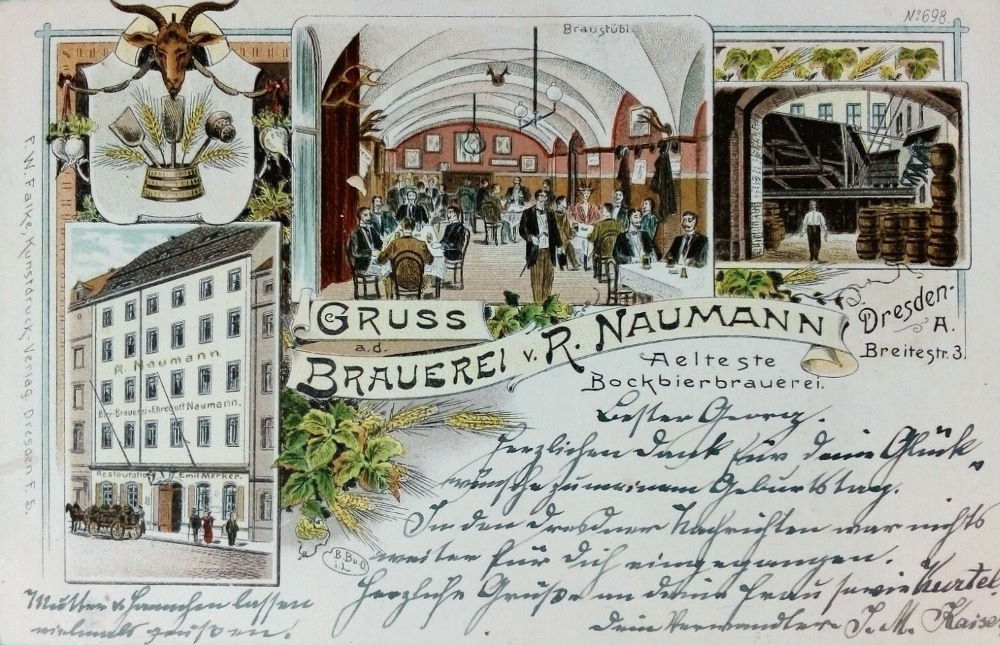 No 698.
Braustübl.
R. Naumann
Bier-Brauerei v. Ehregott Naumann.
Restauration Emil Merker.
GRUSS
a.d.
BRAUEREI v. R. NAUMANN
Aelteste
Bockbierbrauerei.
Dresden-
A.
Breitestr. 3.
F. W. Falke, Kunstdruck, Verlag Dresden F. 5.
Bester Georg.
Herzlichen Dank für deine Glück-
wünsche zu meinem Geburtstag.
In den Dresdner Nachrichten war nichts
weiter für Dich eingegangen.
Herzliche Grüße an deine Frau sowie Kurtel.
Dein Verwandter J. M. Kaiser
Mutter u. Hannchen lassen
vielmals grüßen!